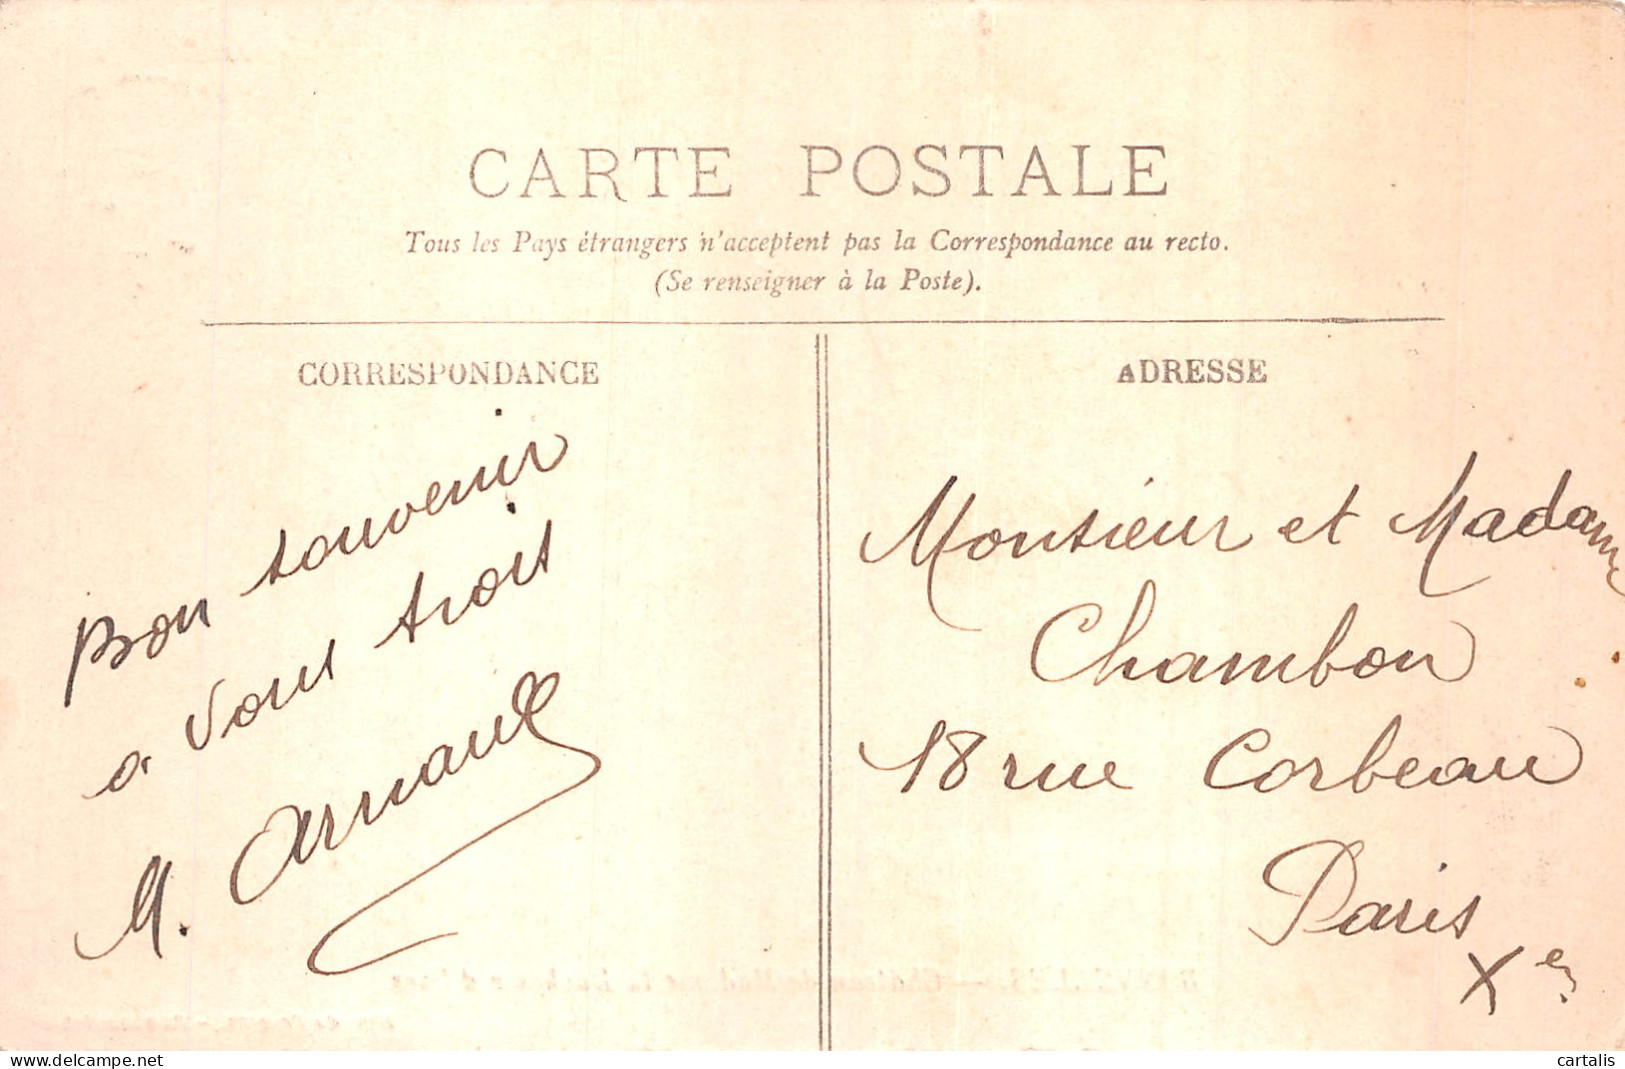 CARTE POSTALE
Tous les Pays étrangers n'acceptent pas la Correspondance au recto.
(Se renseigner à la Poste).
CORRESPONDANCE
Bon souvenir
a vous trois
M. Arnault
ADRESSE
Monsieur et Madame
Chambon
18 rue Corbeau
Paris
Xe
delcampe.net
cartalis